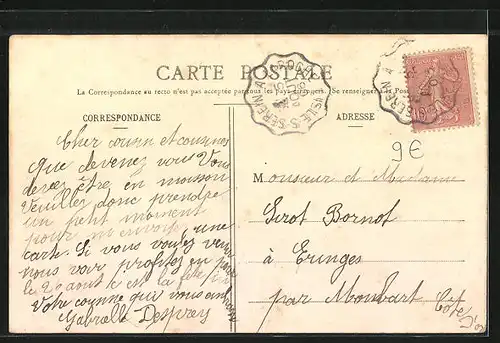 CARTE POSTALE
La Correspondance au recto n'est pas acceptée par tous les pays étrangers. (Se renseigner à la Poste)
CORRESPONDANCE
ADRESSE
9€
Cher cousin et cousines
Que devenez vous Vous
devez être en moisson
Veuillez donc prendre
un petit moment
pour m'envoyer une
carte. Si vous voulez venir
nous voir profitez en
le 20 aout c est la fête
Votre cousine qui vous aime
Gabrielle Desprey
Monsieur et Madame
Sirot Bornot
à Eringes
par Montbart Côte d'or